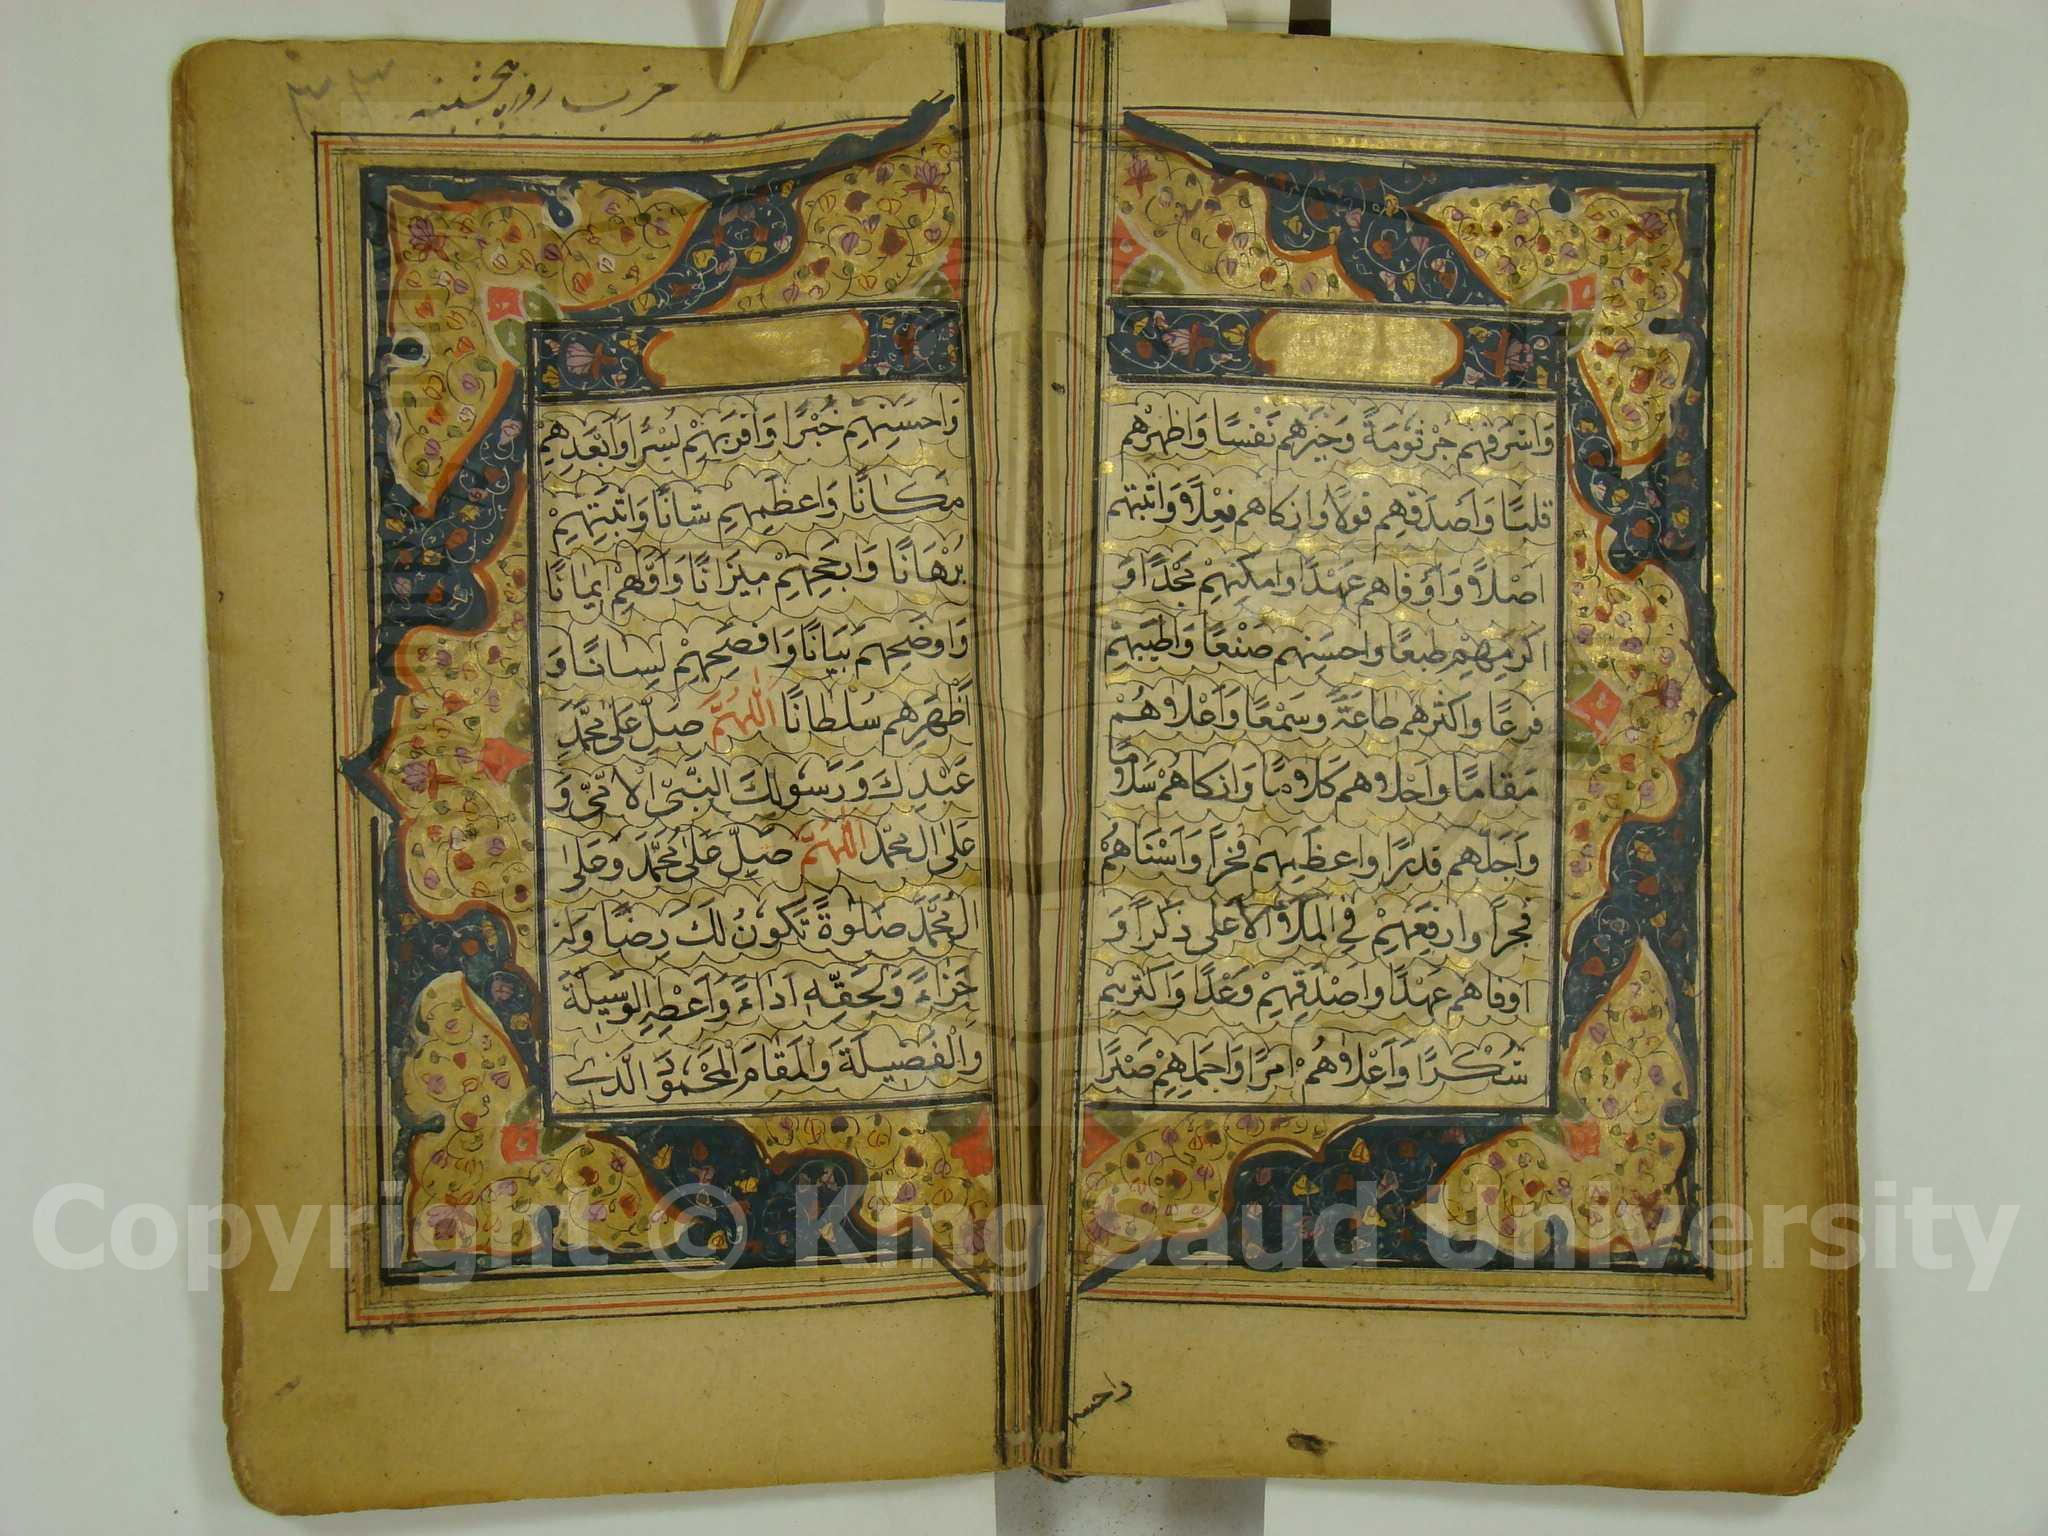 وَاَشْرَفِهِمْ جُرْثُومَةً وَخَيْرِهِمْ نَفْسًا وَاَطْهَرِهِمْ
قَلْبًا وَاَصْدَقِهِمْ قَوْلًا وَازكاهم فِعْلًا وَاَثْبَتِهِمْ
اَصْلًا وَاَوْفَاهم عَهْدًا وامكنِهِمْ مَجْدًا وَ
اكرمِهِمْ طبعًا واحسَنِهم صُنْعًا وَاَطْيَبِهِمْ
فرعًا واكثرِهم طاعَةً وسَمْعًا وَاَعْلاهُمْ
مَقامًا واَحْلاهم كَلامًا وَازكاهُمْ سَلامًا
واَجَلِّهم قدرًا واعظَمِهم فَخْرًا وَاَسْنَاهُمْ
فَخْرًا وارفعِهِمْ فِي الْمَلَاِ الْاَعْلى ذِكْرًا وَ
اوفاهم عَهْدًا واَصْدَقِهِمْ وَعْدًا وَاَكْثَرِهِمْ
شُكْرًا وَاَعْلاهُمْ اَمْرًا وَاَجْمَلِهِمْ صَبْرًا
واحسنهم
حزب روز پنجشنبه
٣٣
وَاَحْسَنِهِم خُبْرًا وَاَقْرَبِهِمْ يُسْرًا وَاَبْعَدِهِمْ
مَكَانًا وَاَعْظَمِهِمْ شَانًا وَاَثْبَتِهِمْ
بُرْهَانًا وَاَرْجَحِهِمْ مِيزَانًا وَاَوَّلِهِمْ اِيمَانًا
وَاَوضَحِهِمْ بَيَانًا وَاَفْصَحِهِمْ لِسَانًا وَ
اَظْهَرِهِم سُلْطَانًا اَللّٰهُمَّ صَلِّ عَلٰى مُحَمَّدٍ
عَبْدِكَ وَرَسُولِكَ النَّبِيِّ الْاُمِّيِّ وَ
عَلٰى اٰلِ مُحَمَّدٍ اَللّٰهُمَّ صَلِّ عَلٰى مُحَمَّدٍ وَعَلٰى
اٰلِ مُحَمَّدٍ صَلٰوةً تَكُونُ لَكَ رِضًا وَلَهُ
جَزَاءً وَلِحَقِّهٖ اَدَاءً وَاَعْطِهِ الْوَسِيلَةَ
وَالْفَضِيلَةَ وَالْمَقَامَ الْمَحْمُودَ الَّذِي
Copyright © King Saud University